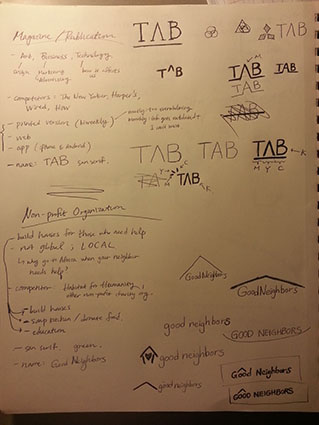 Magazine / Publication
- Art, Business, Technology,
Design Marketing
Advertising
- competitors: The New Yorker, Harper's,
Wired, How
- printed version (biweekly)
- web
- app (phone & Android)
- name: TAB san serif.
TAB
TAB
TAB
TAB
TAB
TAB
TAB
TAB
TAB
TAB
TAB
M Y C
K
TAB
K
Non-profit Organization
- build houses for those who need help
- not global ; LOCAL
why go to Africa when your neighbor
needs help?
- competitor: Habitat for Humanity,
other non-profit charity org.
- build houses
- soup kitchen / donate food
- education
- san serif green.
- name: Good Neighbors
GoodNeighbors
GoodNeighbors
good neighbors
GOOD NEIGHBORS
good neighbors
good neighbors
Good Neighbors
GOOD NEIGHBORS